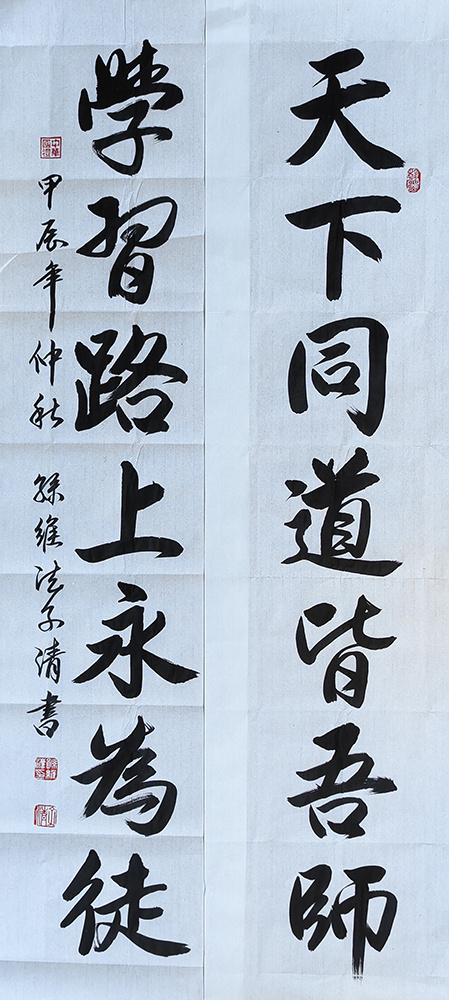 天下同道皆吾師
學習路上永為徒
甲辰年仲秋 孫維法子清書